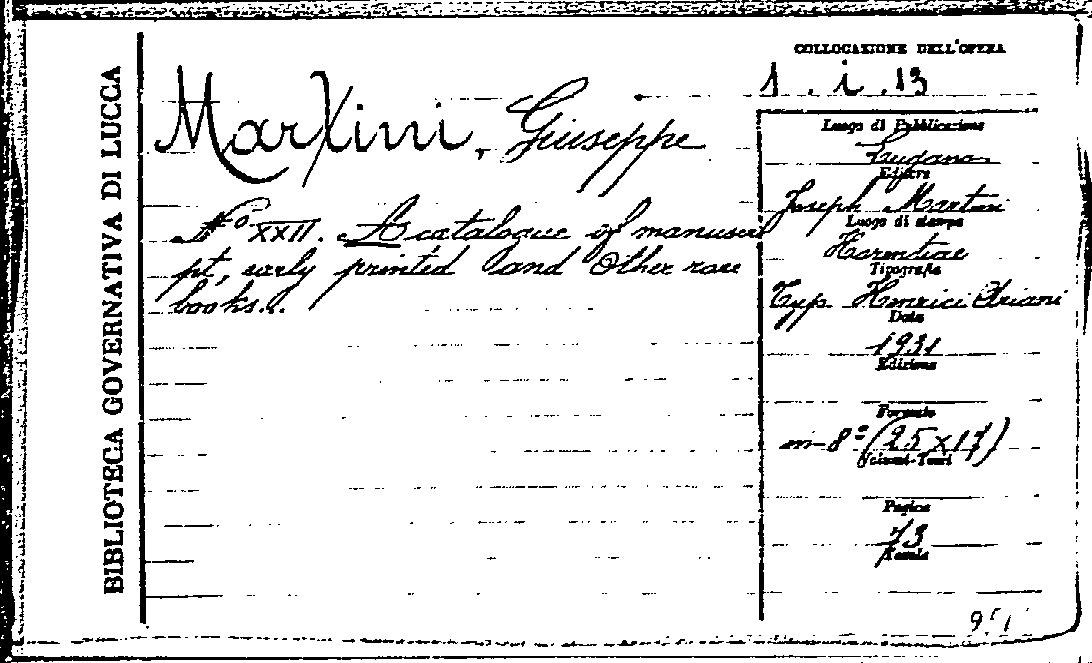 BIBLIOTECA GOVERNATIVA DI LUCCA
COLLOCAZIONE DELL'OPERA
1 . i . 13
Martini, Giuseppe
N° XXII. A catalogue of manuscri
pt, early printed and other rare
books...
Luogo di Pubblicazione
Lugano
Editore
Joseph Martini
Luogo di stampa
Florentiae
Tipografia
Typ. Henrici Ariani
Data
1931
Edizione
Formato
in-8° (25x17)
Volumi-Tomi
Pagine
73
Tavole